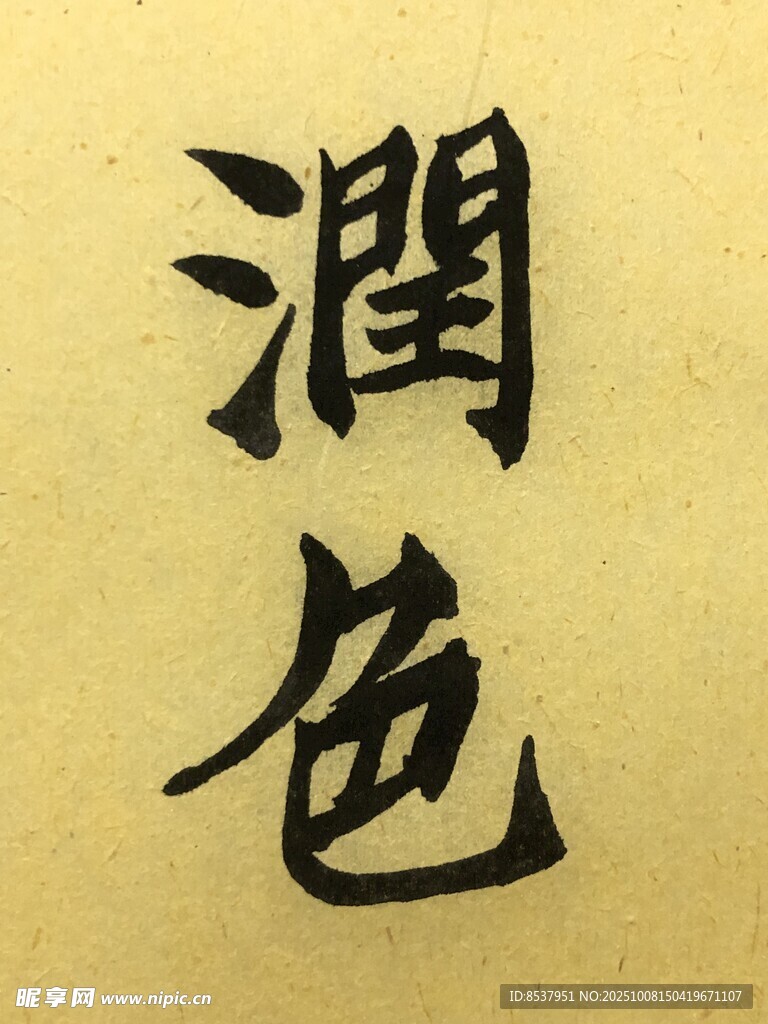 潤
色
昵享网 www.nipic.cn
ID:8537951 NO:20251008150419671107